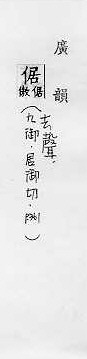 廣韻
倨
倨傲
去聲．
（九御．居御切．）